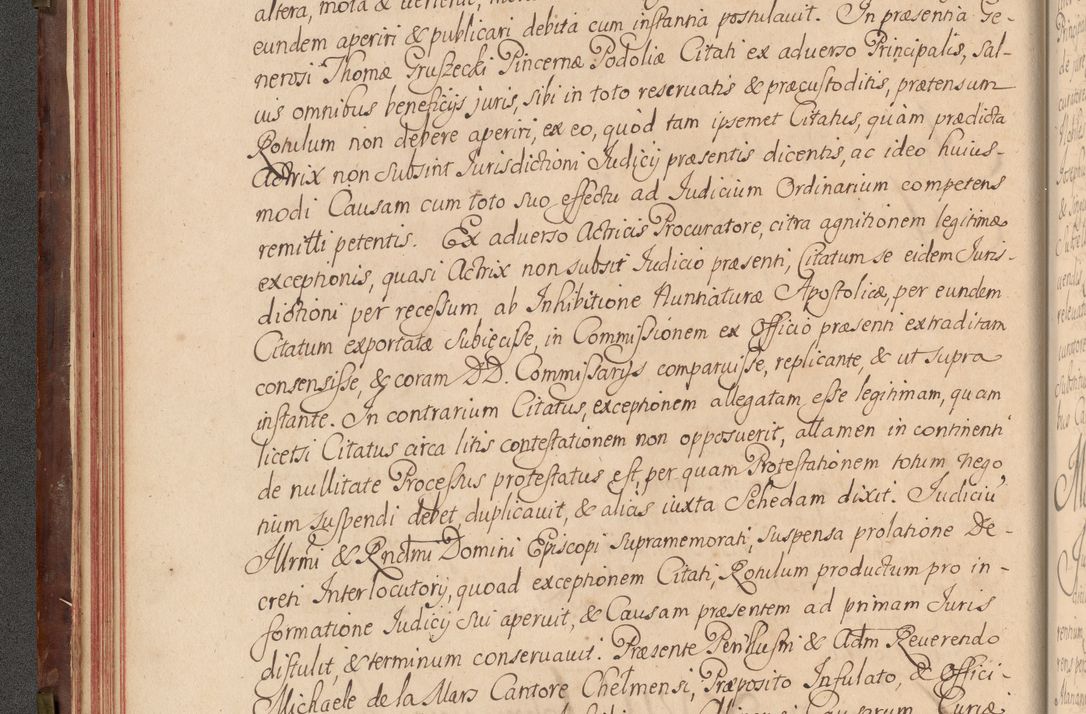 altera, mota &
eundem aperiri & publicari debita cum instantia postulavit. In præsentia Ge-
nerosi Thomæ Gruszecki Pincernæ Podoliæ Citati ex adverso Principalis, sal-
vis omnibus beneficijs juris, sibi in toto reservatis & præcustoditis, prætensum
Rotulum non debere aperiri, ex eo, quòd tam ipsemet Citatus, quàm prædicta
Actrix non subsint Jurisdictioni Judicij præsentis dicentis, ac ideo huius-
modi Causam cum toto suo effectu ad Judicium Ordinarium competens
remitti petentis. Ex adverso Actricis Procuratore, citra agnitionem legitimæ
exceptionis, quasi Actrix non subsit Judicio præsenti, Citatum se eidem Juris-
dictioni per recessum ab Inhibitione Nunciaturæ Apostolicæ, per eundem
Citatum exportatæ subiecisse, in Commissionem ex Officio præsenti extraditam
consensisse, & coram DD. Commissarijs comparuisse, replicante, & ut supra
instante. In contrarium Citatus, exceptionem allegatam esse legitimam, quam
licetsi Citatus circa litis contestationem non opposuerit, attamen in continenti
de nullitate Processus protestatus est, per quam Protestationem totum nego
tium suspendi debet, duplicavit, & alias iuxta Schedam dixit. Judiciū
Illrmi & Rndmi Domini Episcopi supramemorati, suspensa prolatione De-
creti Interlocutorij, quoad exceptionem Citati, Rotulum productum pro in-
formatione Judicij sui aperuit, & Causam præsentem ad primam Juris
distulit, & terminum conservavit. Præsente Perillustri & Adm Reverendo
Michaele de la Mars Cantore Chelmensi, Præposito Infulato, & Offici-
Causarum Curiæ